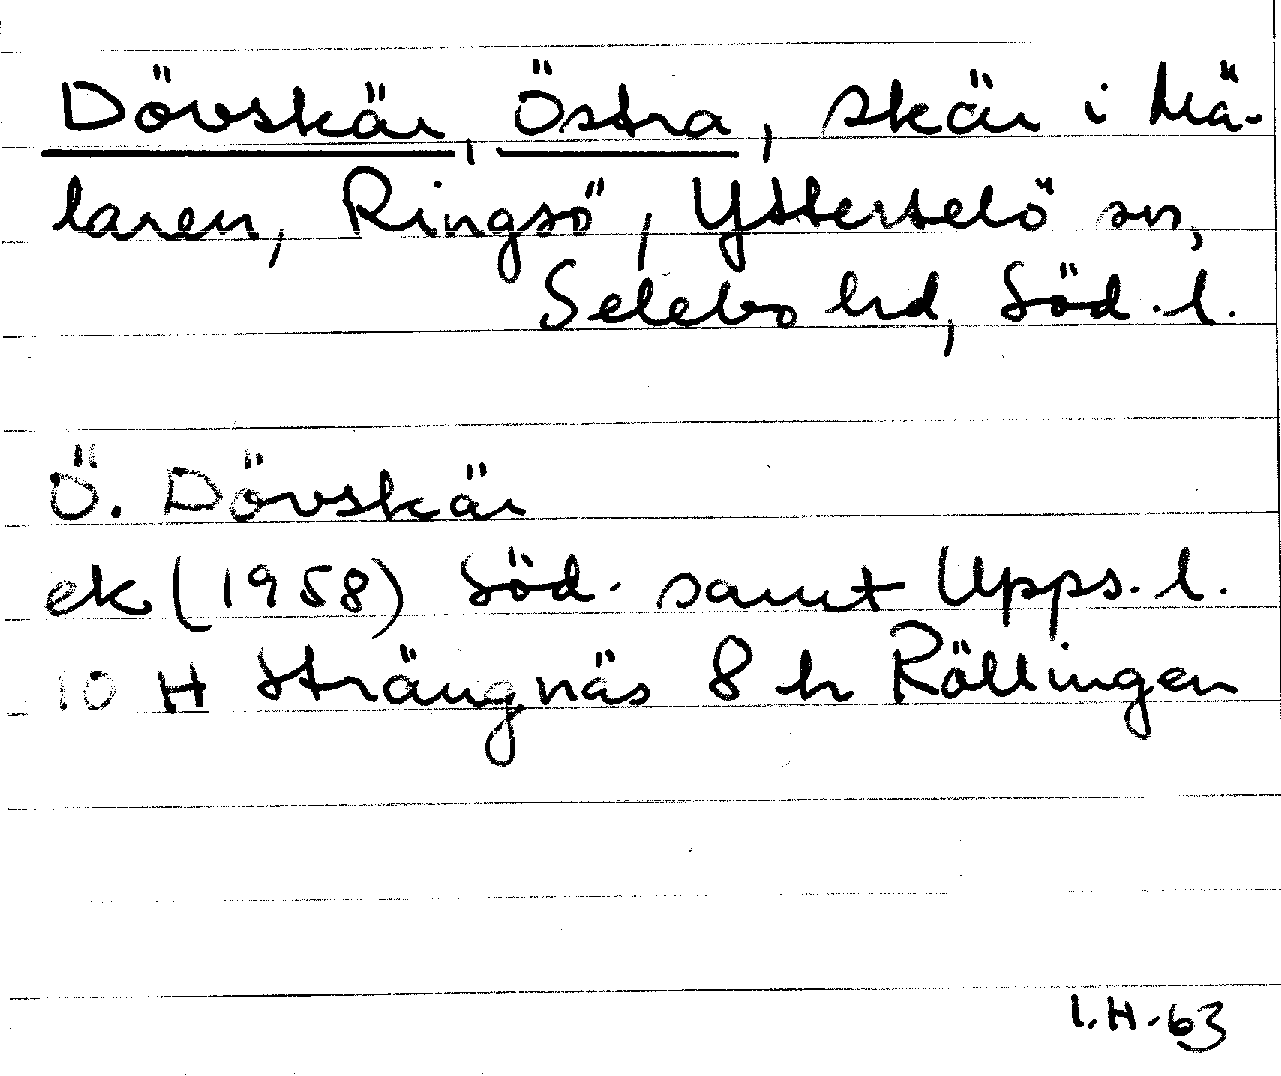 Dövskär, Östra, skär i Mä-
laren, Ringsö, Ytterselö sn,
Selebo hd, Söd. l.
Ö. Dövskär
ek (1958) Söd. samt Upps. l.
10 H Strängnäs 8 h Röllingen
I.H.-63